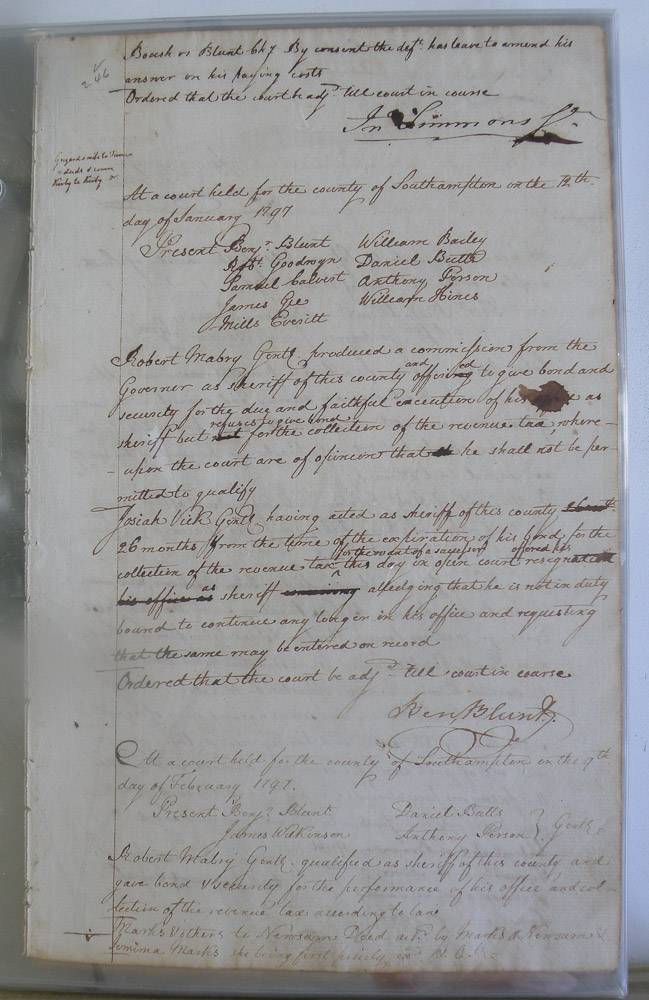 Boush vs Blunt Chy By consent the deft. has leave to amend his
answer on his paying costs
Ordered that the court be adjd. till court in course
Jno. Simmons
246
At a court held for the county of Southampton on the 12th.
day of January 1797
Present Benjn. Blunt William Bailey
Robt. Goodwyn Daniel Butts
Samuel Calvert Anthony Person
James Gee William Hines
Mills Everitt
Robert Mabry Gentl. produced a commission from the
Governor as sheriff of this county and offered to give bond and
security for the due and faithful execution of his as
sheriff but refuses to give bond for the collection of the revenue tax, where-
-upon the court are of opinion that he shall not be per-
mitted to qualify
Josiah Vick Gentl. having acted as sheriff of this county
26 months from the time of the expiration of his bond for the
collection of the revenue tax for the want of a successor this day in open court offered his resignation
his office as sheriff alledging that he is not in duty
bound to continue any longer in his office and requesting
that the same may be entered on record
Ordered that the court be adjd. till court in course
Ben Blunt
At a court held for the county of Southampton on the 9th
day of February 1797.
Present Benjn. Blunt Daniel Butts
James Wilkinson Anthony Person } Gentl.
Robert Mabry Gentl. qualified as sheriff of this county and
gave bond & security for the performance of his office and col-
lection of the revenue tax according to law
Marks & others to Newsum Deed by Marks & Newsum &
Jemima Marks she being first privily